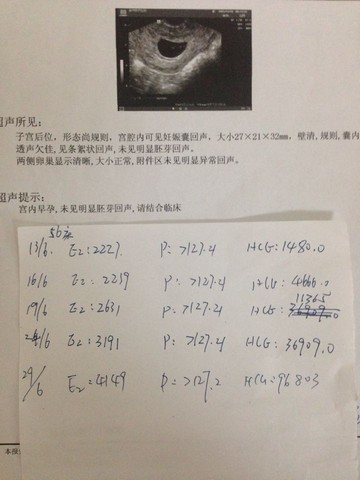 超声所见:
子宫后位,形态尚规则,宫腔内可见妊娠囊回声,大小27×21×32mm,壁清,规则,囊内
透声欠佳,见条絮状回声,未见明显胚芽回声。
两侧卵巢显示清晰,大小正常,附件区未见明显异常回声。
超声提示:
宫内早孕,未见明显胚芽回声,请结合临床
13/6 E2:2227. P:>127.4 HCG:1480.0
16/6 E2:2239 P:>127.4 HCG:4666.0
1136.5
19/6 E2:2631 P:>127.4 HCG:
24/6 E2:3191 P:>127.4 HCG:36909.0
29/6 E2:4149 P:>127.2 HCG:96803
本报